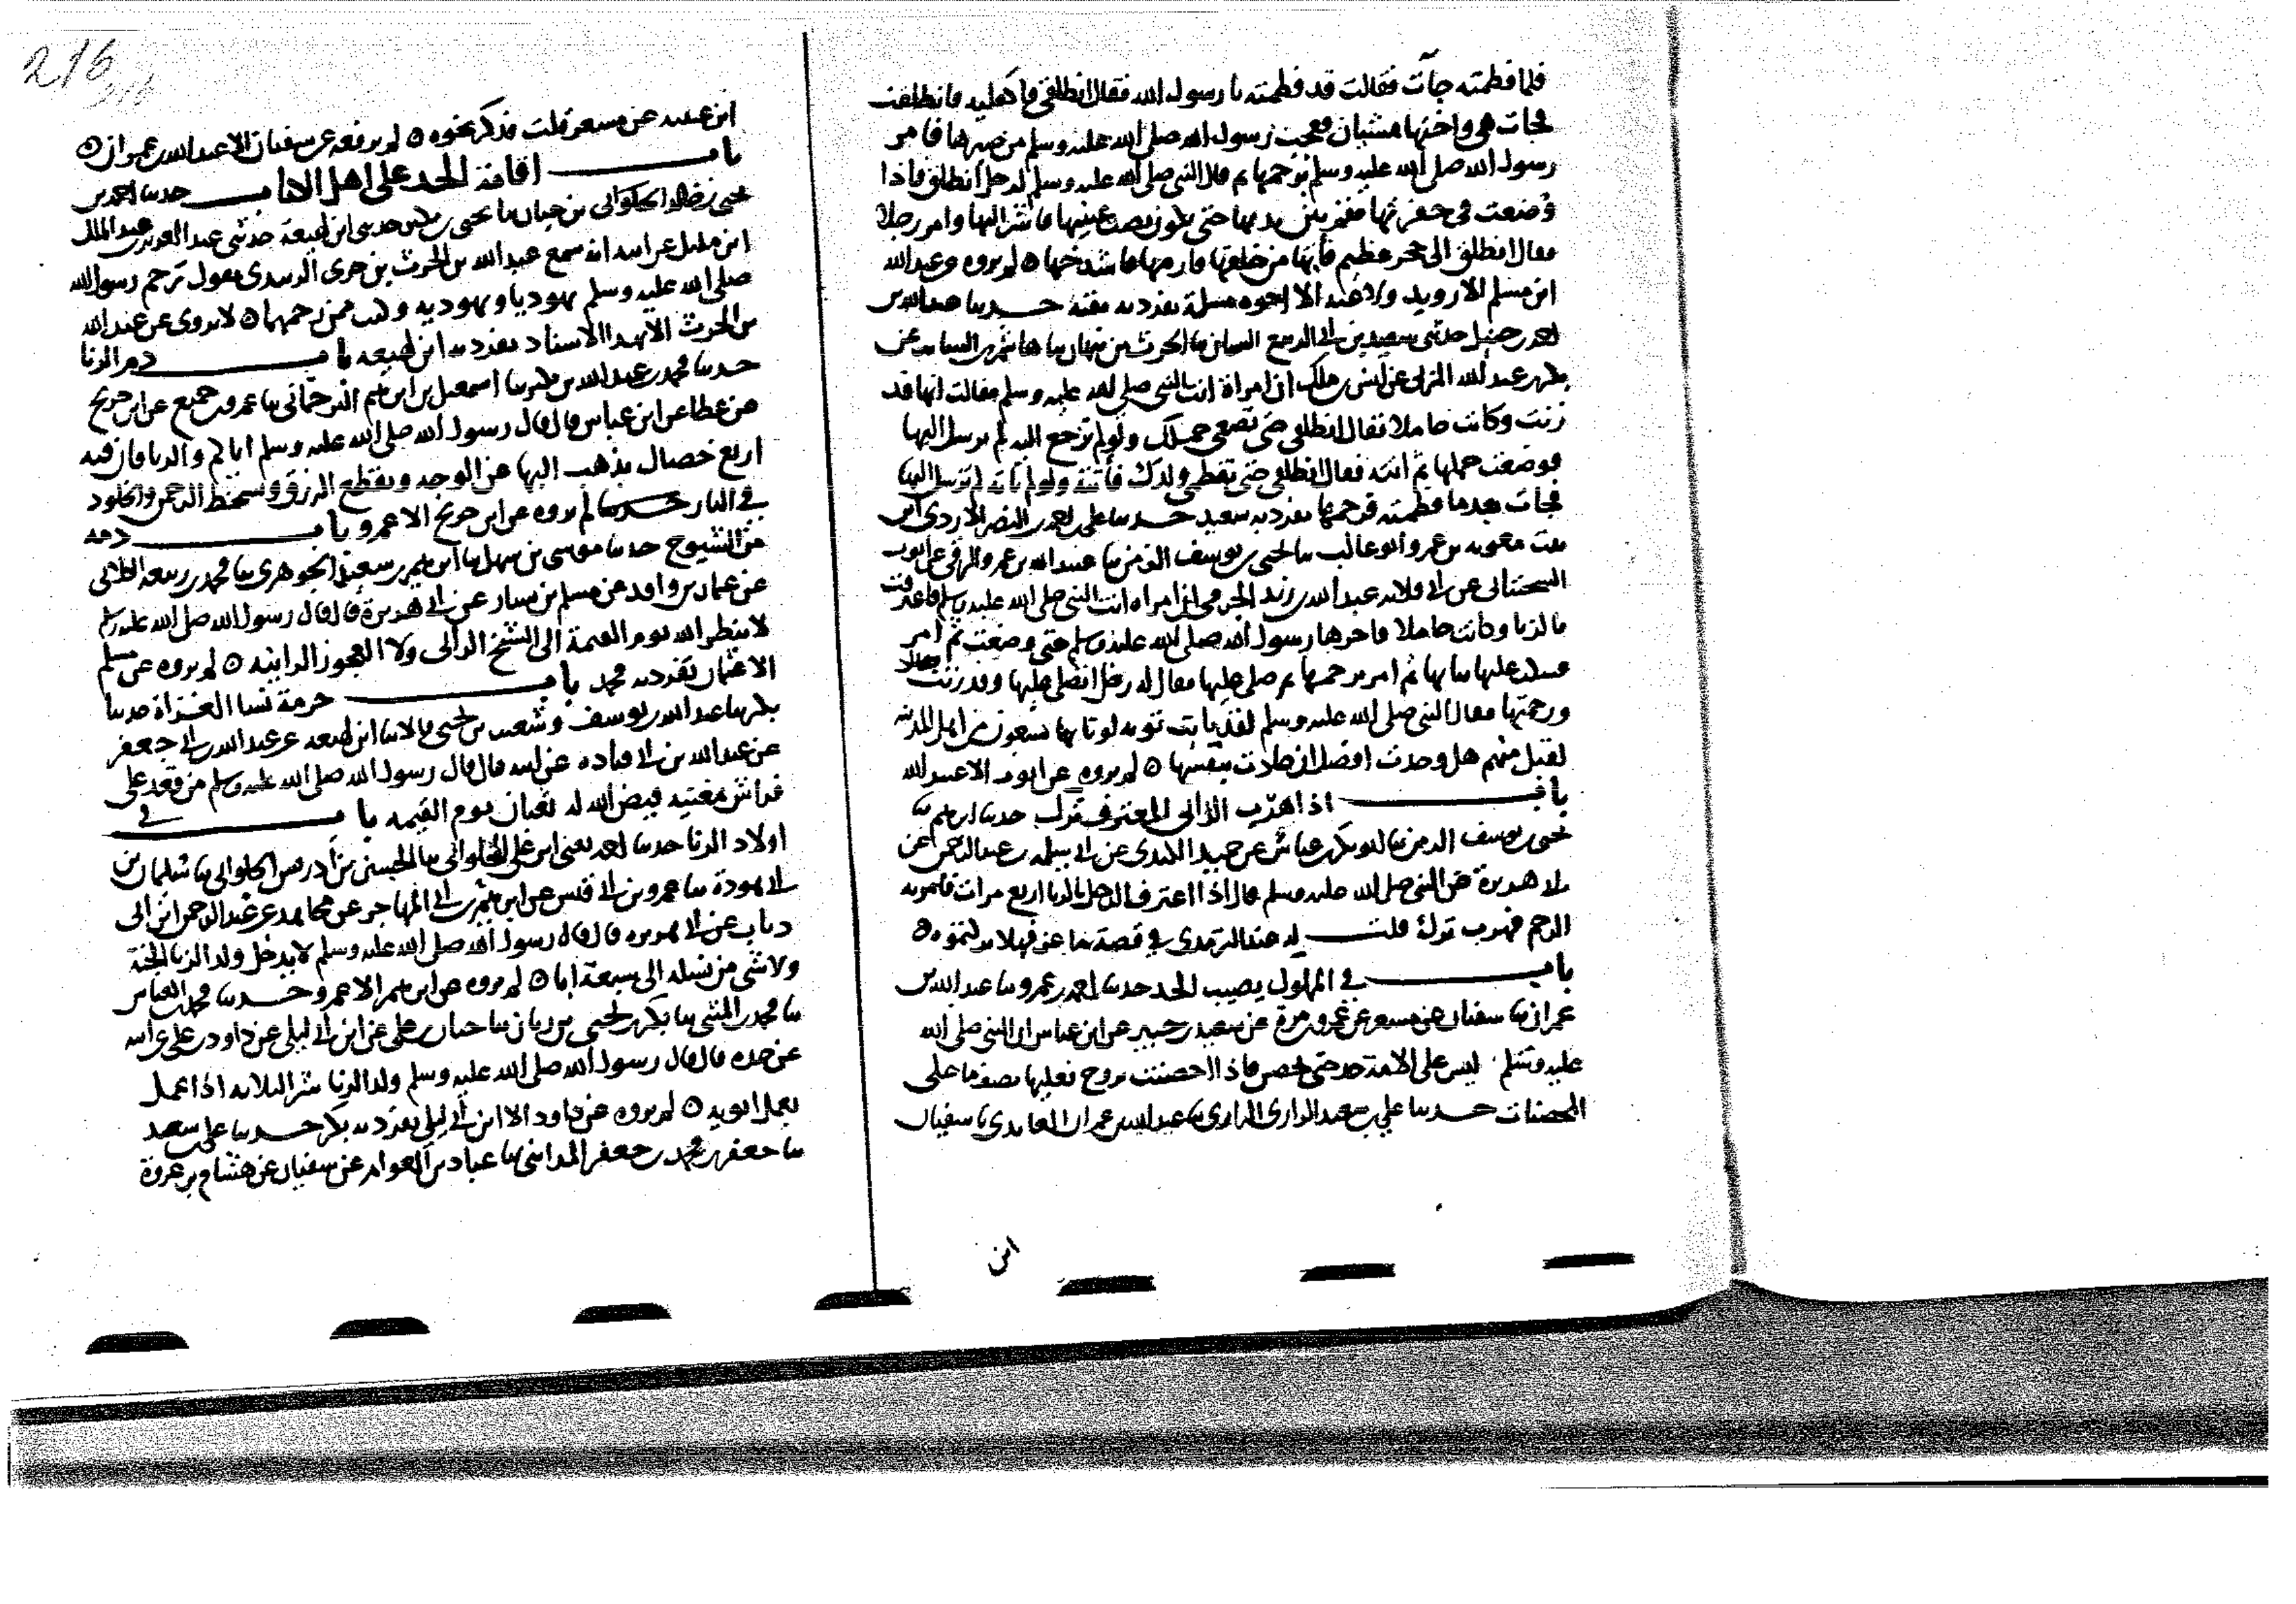 فلما فطمته جآت فقالت قد فطمته يا رسول الله فقال انطلقي فاكفليه فانطلقت
فجات هي واختها تمشيان فعجب رسول الله صلى الله عليه وسلم من صبرها فامر
رسول الله صلى الله عليه وسلم برجمها ثم قال النبي صلى الله عليه وسلم لرجل انطلق فاذا
وضعت في حفرتها فقم بين يديها حتى تكون نصب عينيها فاشر اليها وامر رجلا
فقال انطلق الى حجر عظيم فأتها من خلفها فارمها فاشدخها ○ لم يروه عبد الله
ابن مسلم الا رويد ولا عنه الا اخوه مسلمة تفرد به حدثنا عبد الله بن
احمد بن حنبل حدثني سعيد بن ابي الربيع السمان
بكر بن عبد الله المزني عن انس بن ملك ان امراة اتت النبي صلى الله عليه وسلم فقالت انها قد
زنت وكانت حاملا فقال انطلقي حتى تضعي حملك ولو لم ترجع اليه لم يرسل اليها
فوضعت حملها ثم اتته فقال انطلقي حتى تفطمي ولدك فأتته ولو لم تاته لم يرسل اليها
فجات بعد ما فطمته فرجمها تفرد به سعيد حدثنا علي بن احمد بن النضر الازدي ابن
بنت معوية بن عمرو ابو غالب ثنا يحيى بن يوسف الزمي ثنا عبيد الله بن عمرو الرقي عن ايوب
السختياني عن ابي قلابة عبد الله بن زيد الجرمي ان امراة اتت النبي صلى الله عليه وسلم فاعترفت
بالزنا وكانت حاملا فاخرها رسول الله صلى الله عليه وسلم حتى وضعت ثم امر
فشد عليها ثيابها ثم امر برجمها ثم صلى عليها فقال له رجل اتصلي عليها وقد زنت
ورجمتها فقال النبي صلى الله عليه وسلم لقد تابت توبة لو تابها سبعون من اهل المدينة
لقبل منهم هل وجدت افضل ان جادت بنفسها ○ لم يروه عن ايوب الا عبيد الله
باب اذا هرب الزاني المعترف ترك حدثنا ابراهيم ثنا
يحيى بن يوسف الزمي ثنا ابو بكر بن عياش عن حميد الكندي عن ابي سلمة بن عبد الرحمن عن
ابي هريرة عن النبي صلى الله عليه وسلم قال اذا اعترف الرجل بالزنا اربع مرات
الرجم فهرب ترك قلت له عند الترمذي في قصة ماعز فهلا تركتموه ○
باب في المملوك يصيب الحد حدثنا احمد بن عمرو ثنا عبد الله بن
عمران ثنا سفيان عن مسعر عن عمرو بن مرة عن سعيد بن جبير عن ابن عباس ان النبي صلى الله
عليه وسلم ليس على الامة حد حتى تحصن فاذا احصنت بزوج فعليها نصف ما على
المحصنات حدثنا علي بن سعيد الرازي ثنا عبد الله بن عمران العابدي ثنا سفيان
ابن
216
ابن عيينة عن مسعر قلت فذكر نحوه ○ لم يرفعه عن سفيان الا عبد الله بن عمران ○
باب اقامة الحد على اهل الكتاب حدثنا احمد بن
يحيى بن خالد بن حيان ثنا يحيى بن بكير حدثني ابن لهيعة حدثني عبد العزيز بن عبد الملك
ابن مليل عن ابيه انه سمع عبد الله بن الحرث بن جزء الزبيدي يقول رجم رسول الله
صلى الله عليه وسلم يهوديا ويهودية وكنت ممن رجمهما ○ لا يروى عن عبد الله
بن الحرث الا بهذا الاسناد تفرد به ابن لهيعة باب ذم الزنا
حدثنا محمد بن عبد الله بن بكير ثنا اسمعيل بن ابراهيم الترجماني ثنا عمرو بن جميع عن ابن جريج
عن عطا عن ابن عباس قال قال رسول الله صلى الله عليه وسلم اياكم والزنا فان فيه
اربع خصال يذهب البها عن الوجه ويقطع الرزق ويسخط الرحمن والخلود
في النار لم يروه عن ابن جريج الا عمرو باب ذمه
من الشيوخ حدثنا موسى بن سهل ثنا ابراهيم بن سعيد الجوهري ثنا محمد بن ربيعة الكلابي
عن عثمان بن واقد عن مسلم بن يسار عن ابي هريرة قال قال رسول الله صلى الله عليه وسلم
لا ينظر الله يوم القيمة الى الشيخ الزاني ولا العجوز الزانية ○ لم يروه عن مسلم
الا عثمان تفرد به محمد باب حرمة نسا الغزاة حدثنا
بكر ثنا عبد الله بن يوسف وشعيب بن يحيى قالا ثنا ابن لهيعة عن عبيد الله بن ابي جعفر
عن عبد الله بن ابي قتادة عن ابيه قال قال رسول الله صلى الله عليه وسلم من قعد على
فراش مغيبة قيض الله له ثعبان يوم القيمة باب في
اولاد الزنا حدثنا احمد ثنا الحسين بن ادريس الحلواني ثنا سليمان بن
ابي هودة ثنا عمرو بن ابي قيس عن ابراهيم بن المهاجر عن مجاهد عن عبد الرحمن بن ابي
ذباب عن ابي هريرة قال قال رسول الله صلى الله عليه وسلم لا يدخل ولد الزنا الجنة
ولا شي من نسله الى سبعة ابا ○ لم يروه عن ابراهيم الا عمرو حدثنا محمد بن العباس
ثنا محمد بن المثنى ثنا بكر بن يحيى بن زبان ثنا حبان بن علي عن ابن ابي ليلى عن داود بن علي عن ابيه
عن جده قال قال رسول الله صلى الله عليه وسلم ولد الزنا شر الثلاثة اذا عمل
بعمل ابويه ○ لم يروه عن داود الا ابن ابي ليلى تفرد به بكر حدثنا علي بن سعيد
ثنا جعفر بن محمد بن جعفر المدايني ثنا عباد بن العوام عن سفيان عن هشام بن عروة